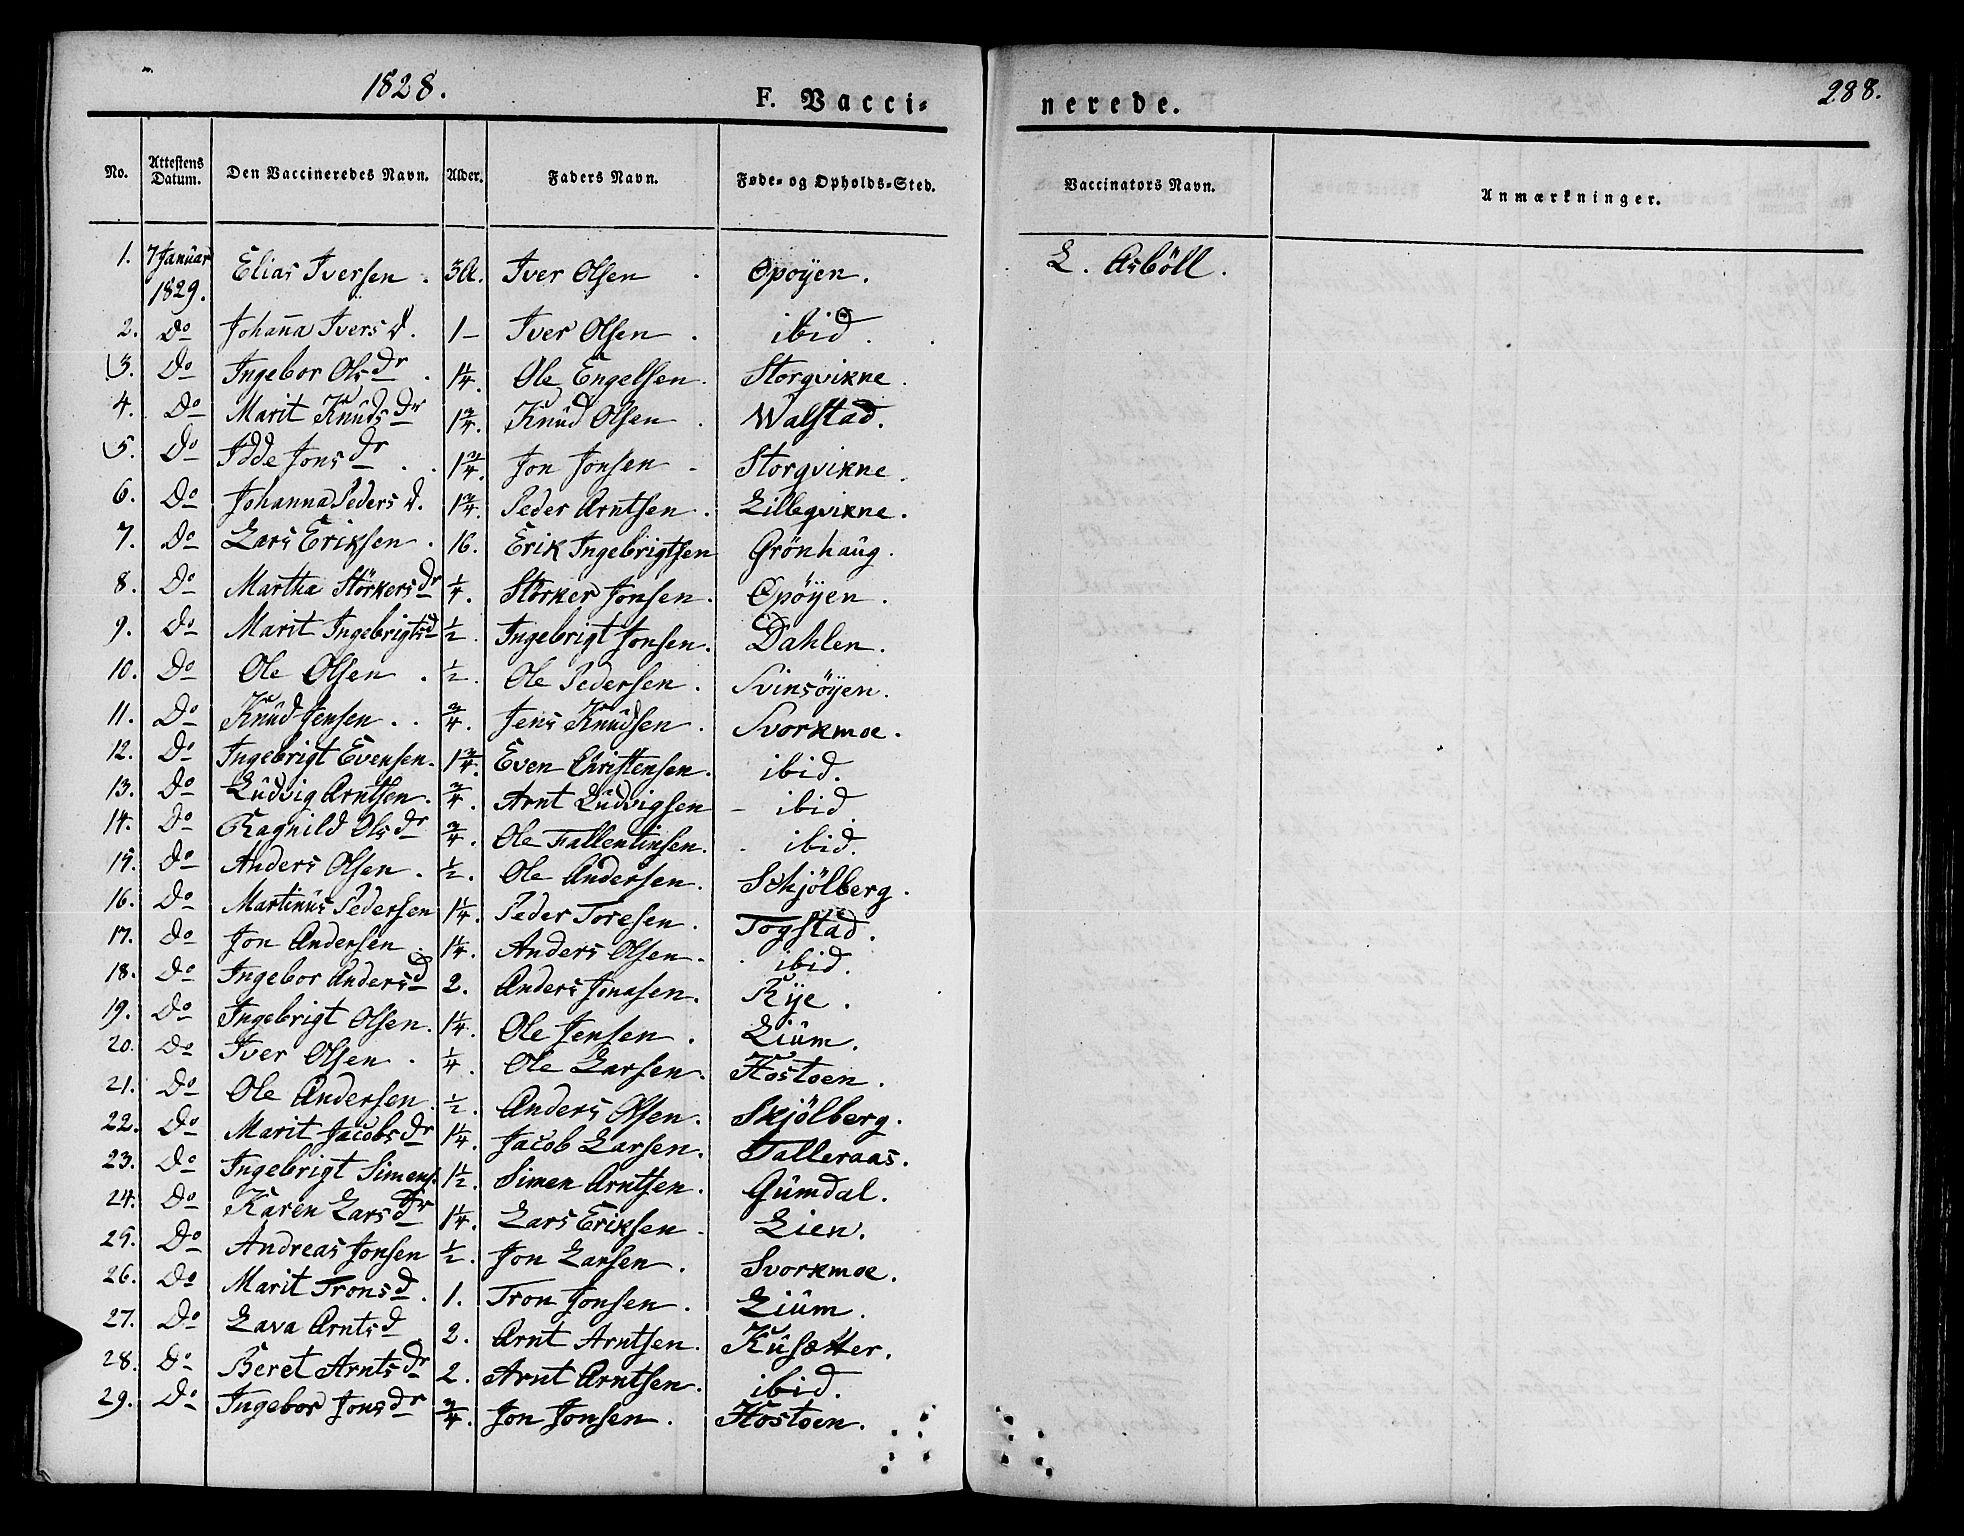 1828.
F. Vacci-
nerede.
288.
No. Attestens Datum. Den Vaccineredes Navn. Alder. Faders Navn. Føde- og Opholds-Sted. Vaccinators Navn. Anmærkninger.
1. 7 Januar 1829. Elias Iversen. 3 A. Iver Olsen. Opøyen. L. Asböll.
2. Do Johaña Ivers D. 1- Iver Olsen. ibid.
3. Do Ingebor Ols Dr. 1 1/4. Ole Engelsen. Storgvikne.
4. Do Marit Knuds Dr 1 3/4. Knud Olsen. Walstad.
5. Do Idde Jons Dr. 1 3/4. Jon Jonsen. Storgvikne.
6. Do Johanna Peders D. 1 3/4. Peder Arntsen. Lillegvikne.
7. Do Lars Eriksen. 16. Erik Ingebrigtsen Grönhaug.
8. Do Martha Störkers Dr 1/4. Störker Jonsen. Opöyen.
9. Do Marit Ingebrigts D 1/2. Ingebrigt Jonsen. Dahlen.
10. Do Ole Olsen. 1/2. Ole Pedersen. Svinsöyen.
11. Do Knud Jensen. 3/4. Jens Knudsen. Svorkmoe.
12. Do Ingebrigt Evensen. 1 3/4. Even Christensen. ibid.
13. Do Ludvig Arntsen. 3/4. Arnt Ludvigsen - ibid
14. Do Ragnild Ols Dr 3/4. Ole Fallentinsen. ibid.
15. Do Anders Olsen. 1/2. Ole Andersen. Schjölberg.
16. Do Martinus Pedersen 1 1/4. Peder Toresen. Togstad.
17. Do Jon Andersen. 1 1/4. Anders Olsen. ibid.
18. Do Ingebor Anders D 2. Anders Jonasen. Rye.
19. Do Ingebrigt Olsen. 1 1/4. Ole Jensen. Lium.
20. Do Iver Olsen. 1/4. Ole Larsen. Hostoen.
21. Do Ole Andersen. 1/2. Anders Olsen. Skjölberg.
22. Do Marit Jacobs Dr 1 1/4. Jacob Larsen. Talleraas.
23. Do Ingebrigt Simens. 1 1/2. Simen Arntsen. Gumdal.
24. Do Karen Lars Dr 1 1/4. Lars Eriksen. Lien.
25. Do Andreas Jonsen 1/2. Jon Larsen. Svorkmoe.
26. Do Marit Trons D. 1. Tron Jonsen. Lium.
27. Do Lava Arnts D 2. Arnt Arntsen. Kusætter.
28. Do Beret Arnts Dr 2. Arnt Arntsen. ibid.
29. Do Ingebor Jons Dr 3/4. Jon Jonsen. Hostoen.